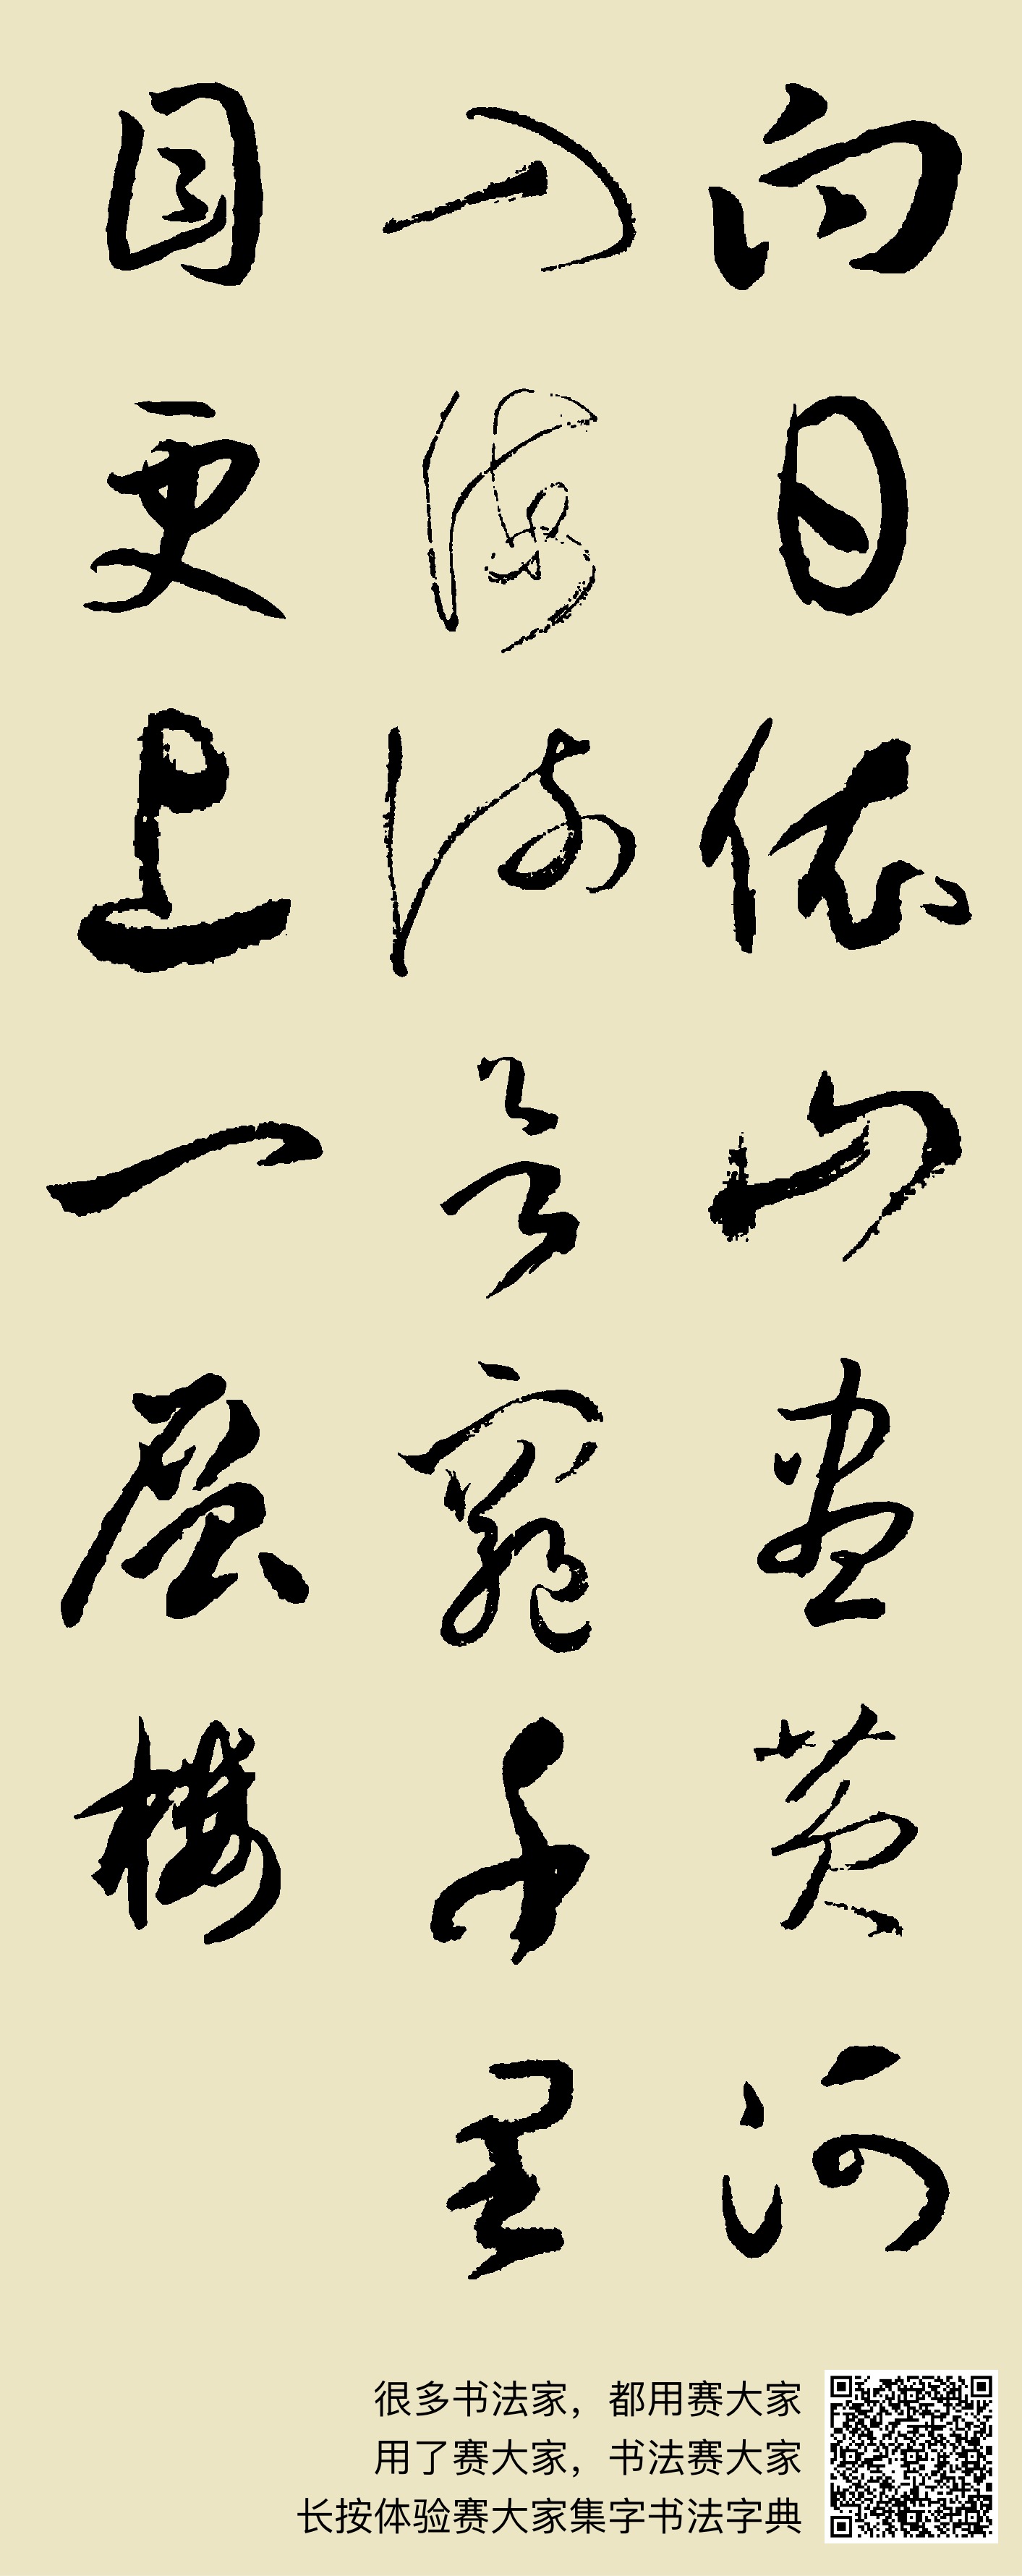 向日依山盡黄河
入海流欲窮千里
目更上一層樓
很多书法家，都用赛大家
用了赛大家，书法赛大家
长按体验赛大家集字书法字典